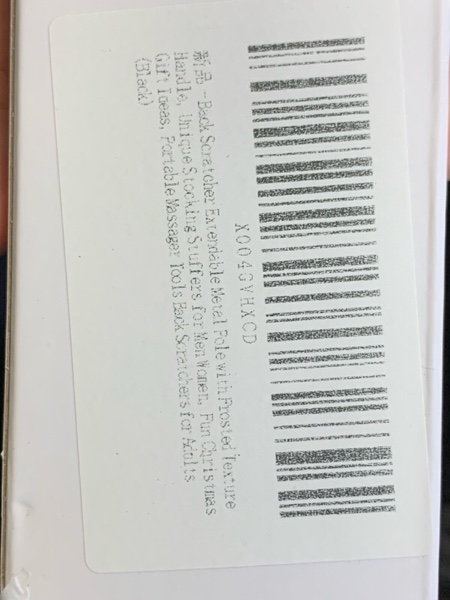 X004GVHXCD
新品 - Back Scratcher Extendable Metal Pole with Frosted Texture
Handle, Unique Stocking Stuffers for Men Women, Fun Christmas
Gift Ideas, Portable Massager Tools Back Scratchers for Adults
(Black)